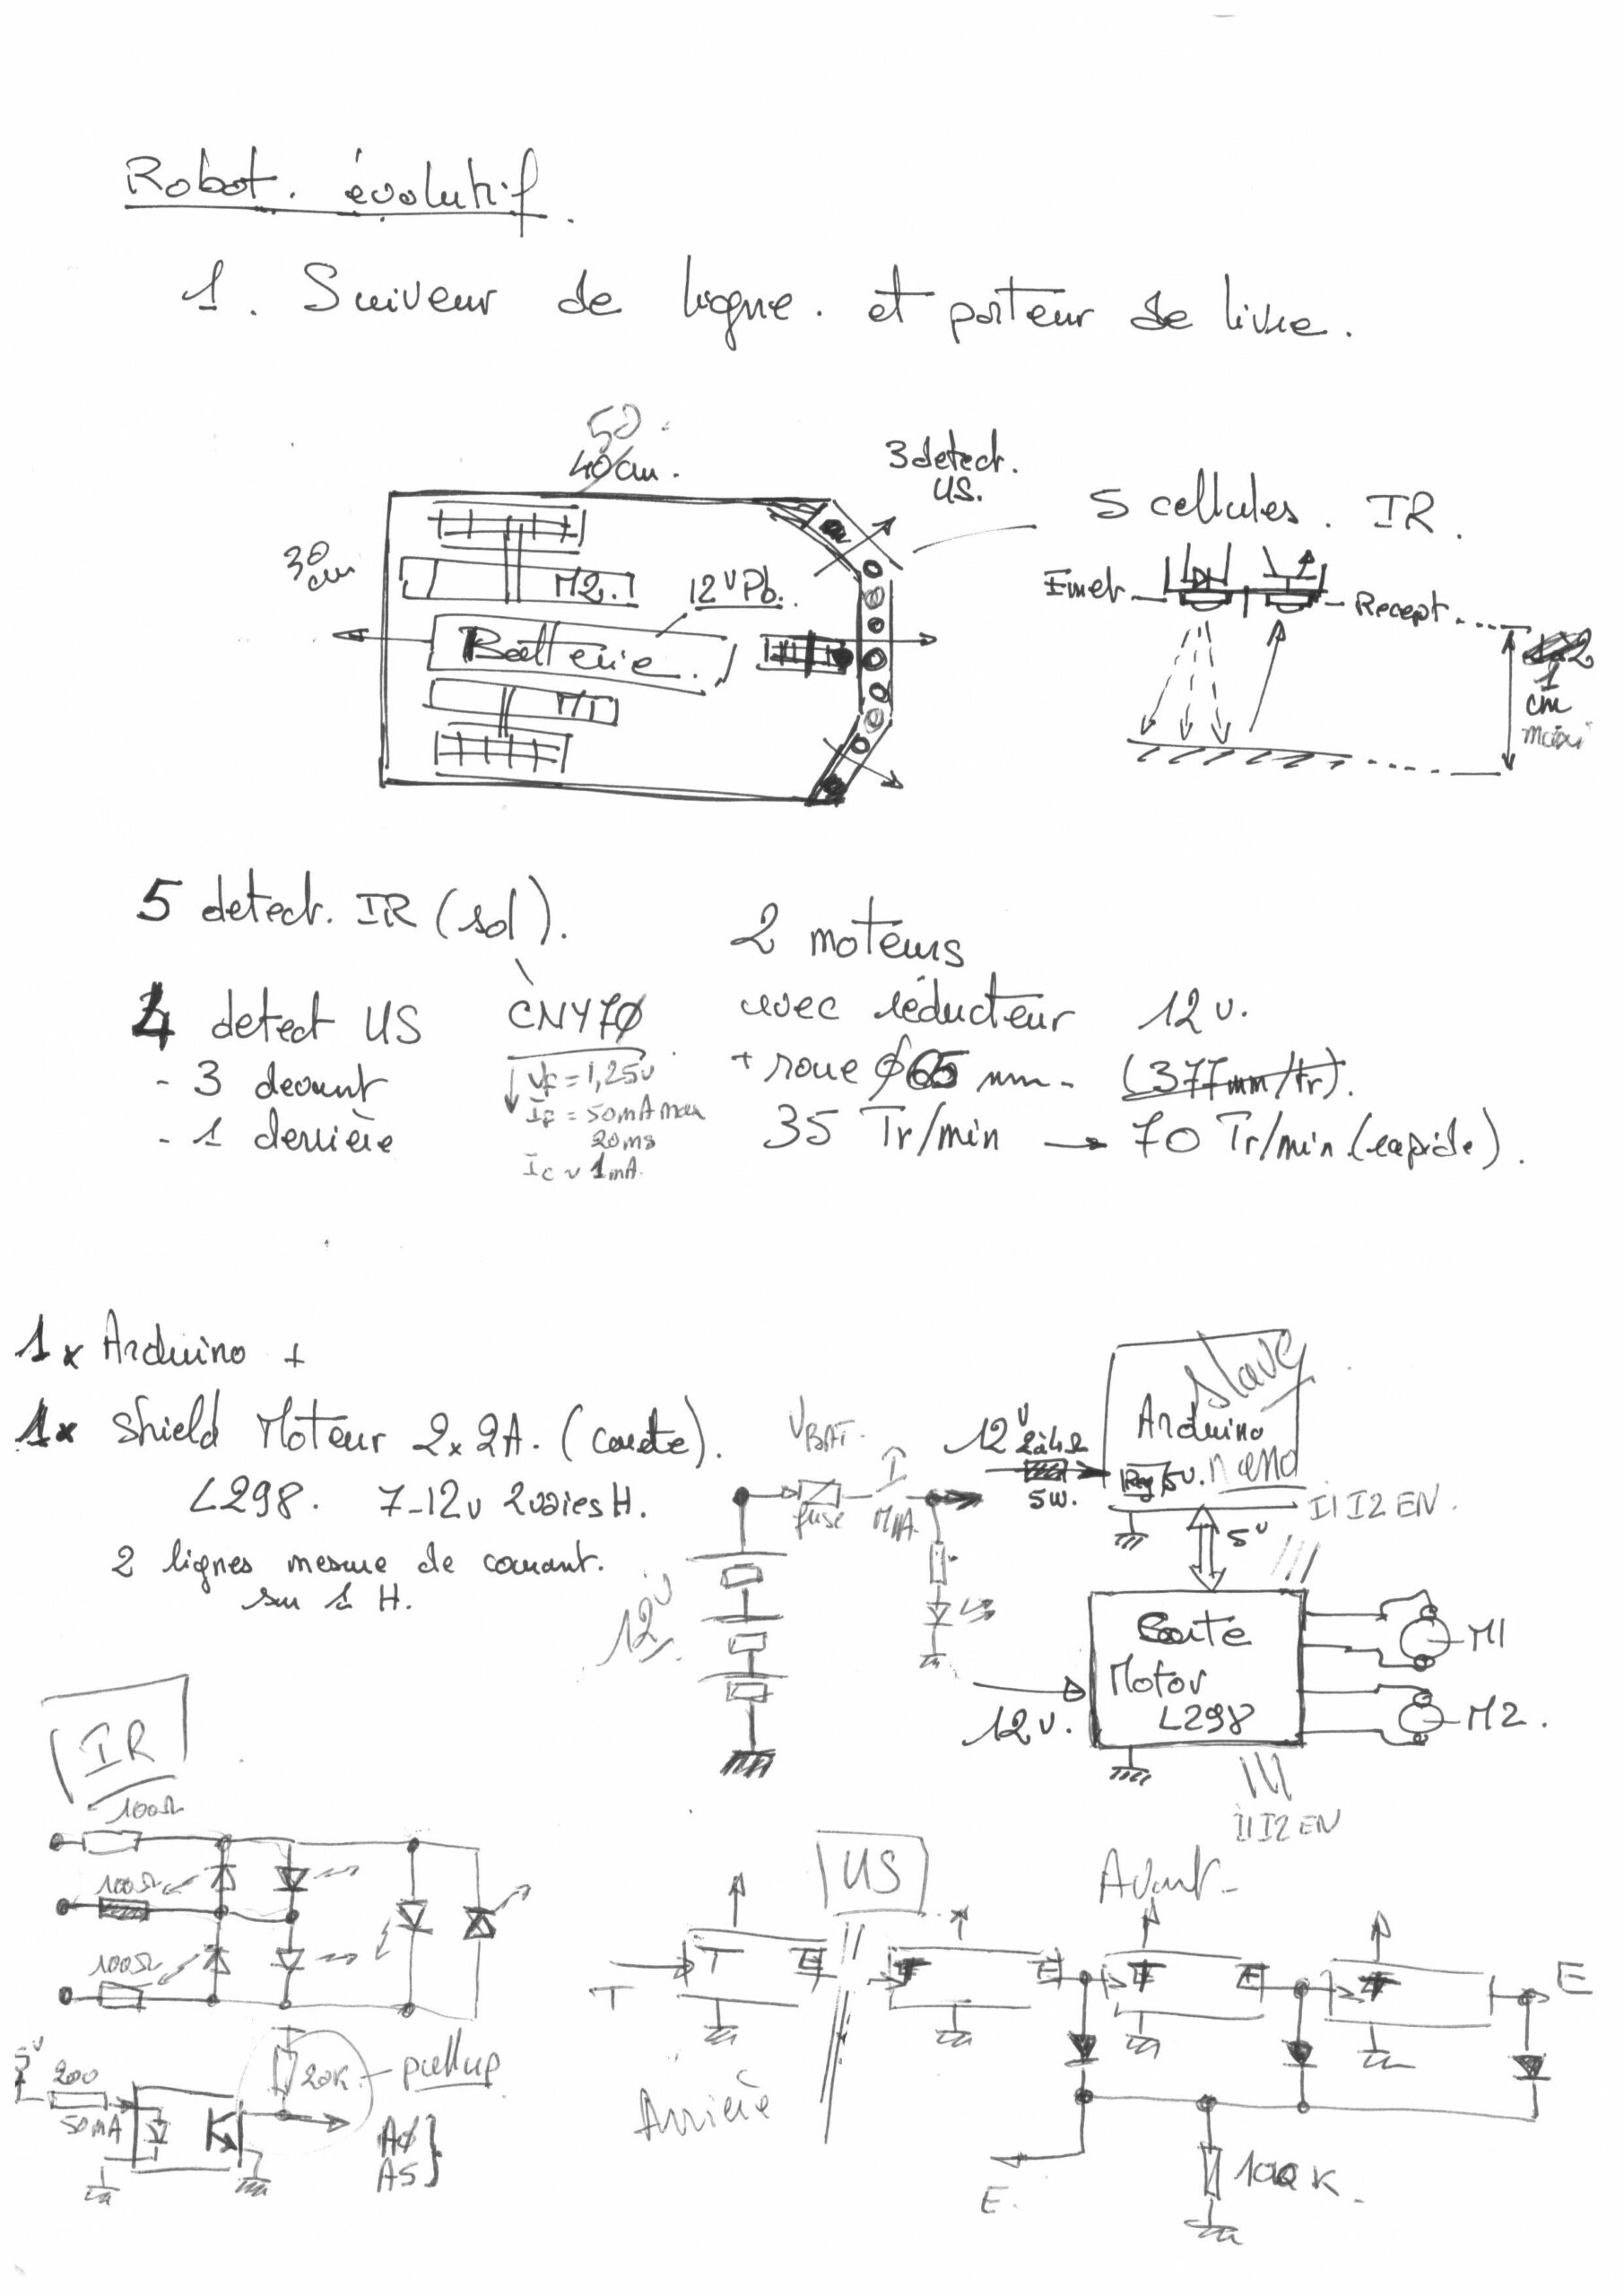 Robot. évolutif.
1. Suiveur de ligne. et porteur de livre.
50
40cm.
30 cm
3 detect. US.
M2.
12V Pb.
Batterie.
M1
5 cellules. IR.
Emet.
Recept.
1 cm maxi
5 detect. IR (sol).
4 detect US
- 3 devant
- 1 derrière
CNY70
VF = 1,25v
IF = 50mA max
20ms
Ic ~ 1mA.
2 moteurs
avec réducteur 12v.
+ roue ø65 mm - (377mm/tr).
35 Tr/min → 70 Tr/min (rapide).
1x Arduino +
1x Shield Moteur 2x2A. (carte).
L298. 7-12v 2 voies H.
2 lignes mesure de courant.
sur 1 H.
VBAT.
I
fuse
12V
12V
2à4Ω
5W.
slave
Arduino
Reg 5v. nano
I1 I2 EN.
5V
Carte
Motor
L298
12v.
M1
M2.
I1 I2 EN
IR
100Ω
100Ω
100Ω
5V
200
50mA
20K
pullup
A0
A5
US
Avant
T
T
E
T
E
T
E
T
E
Arrière
E.
100K.